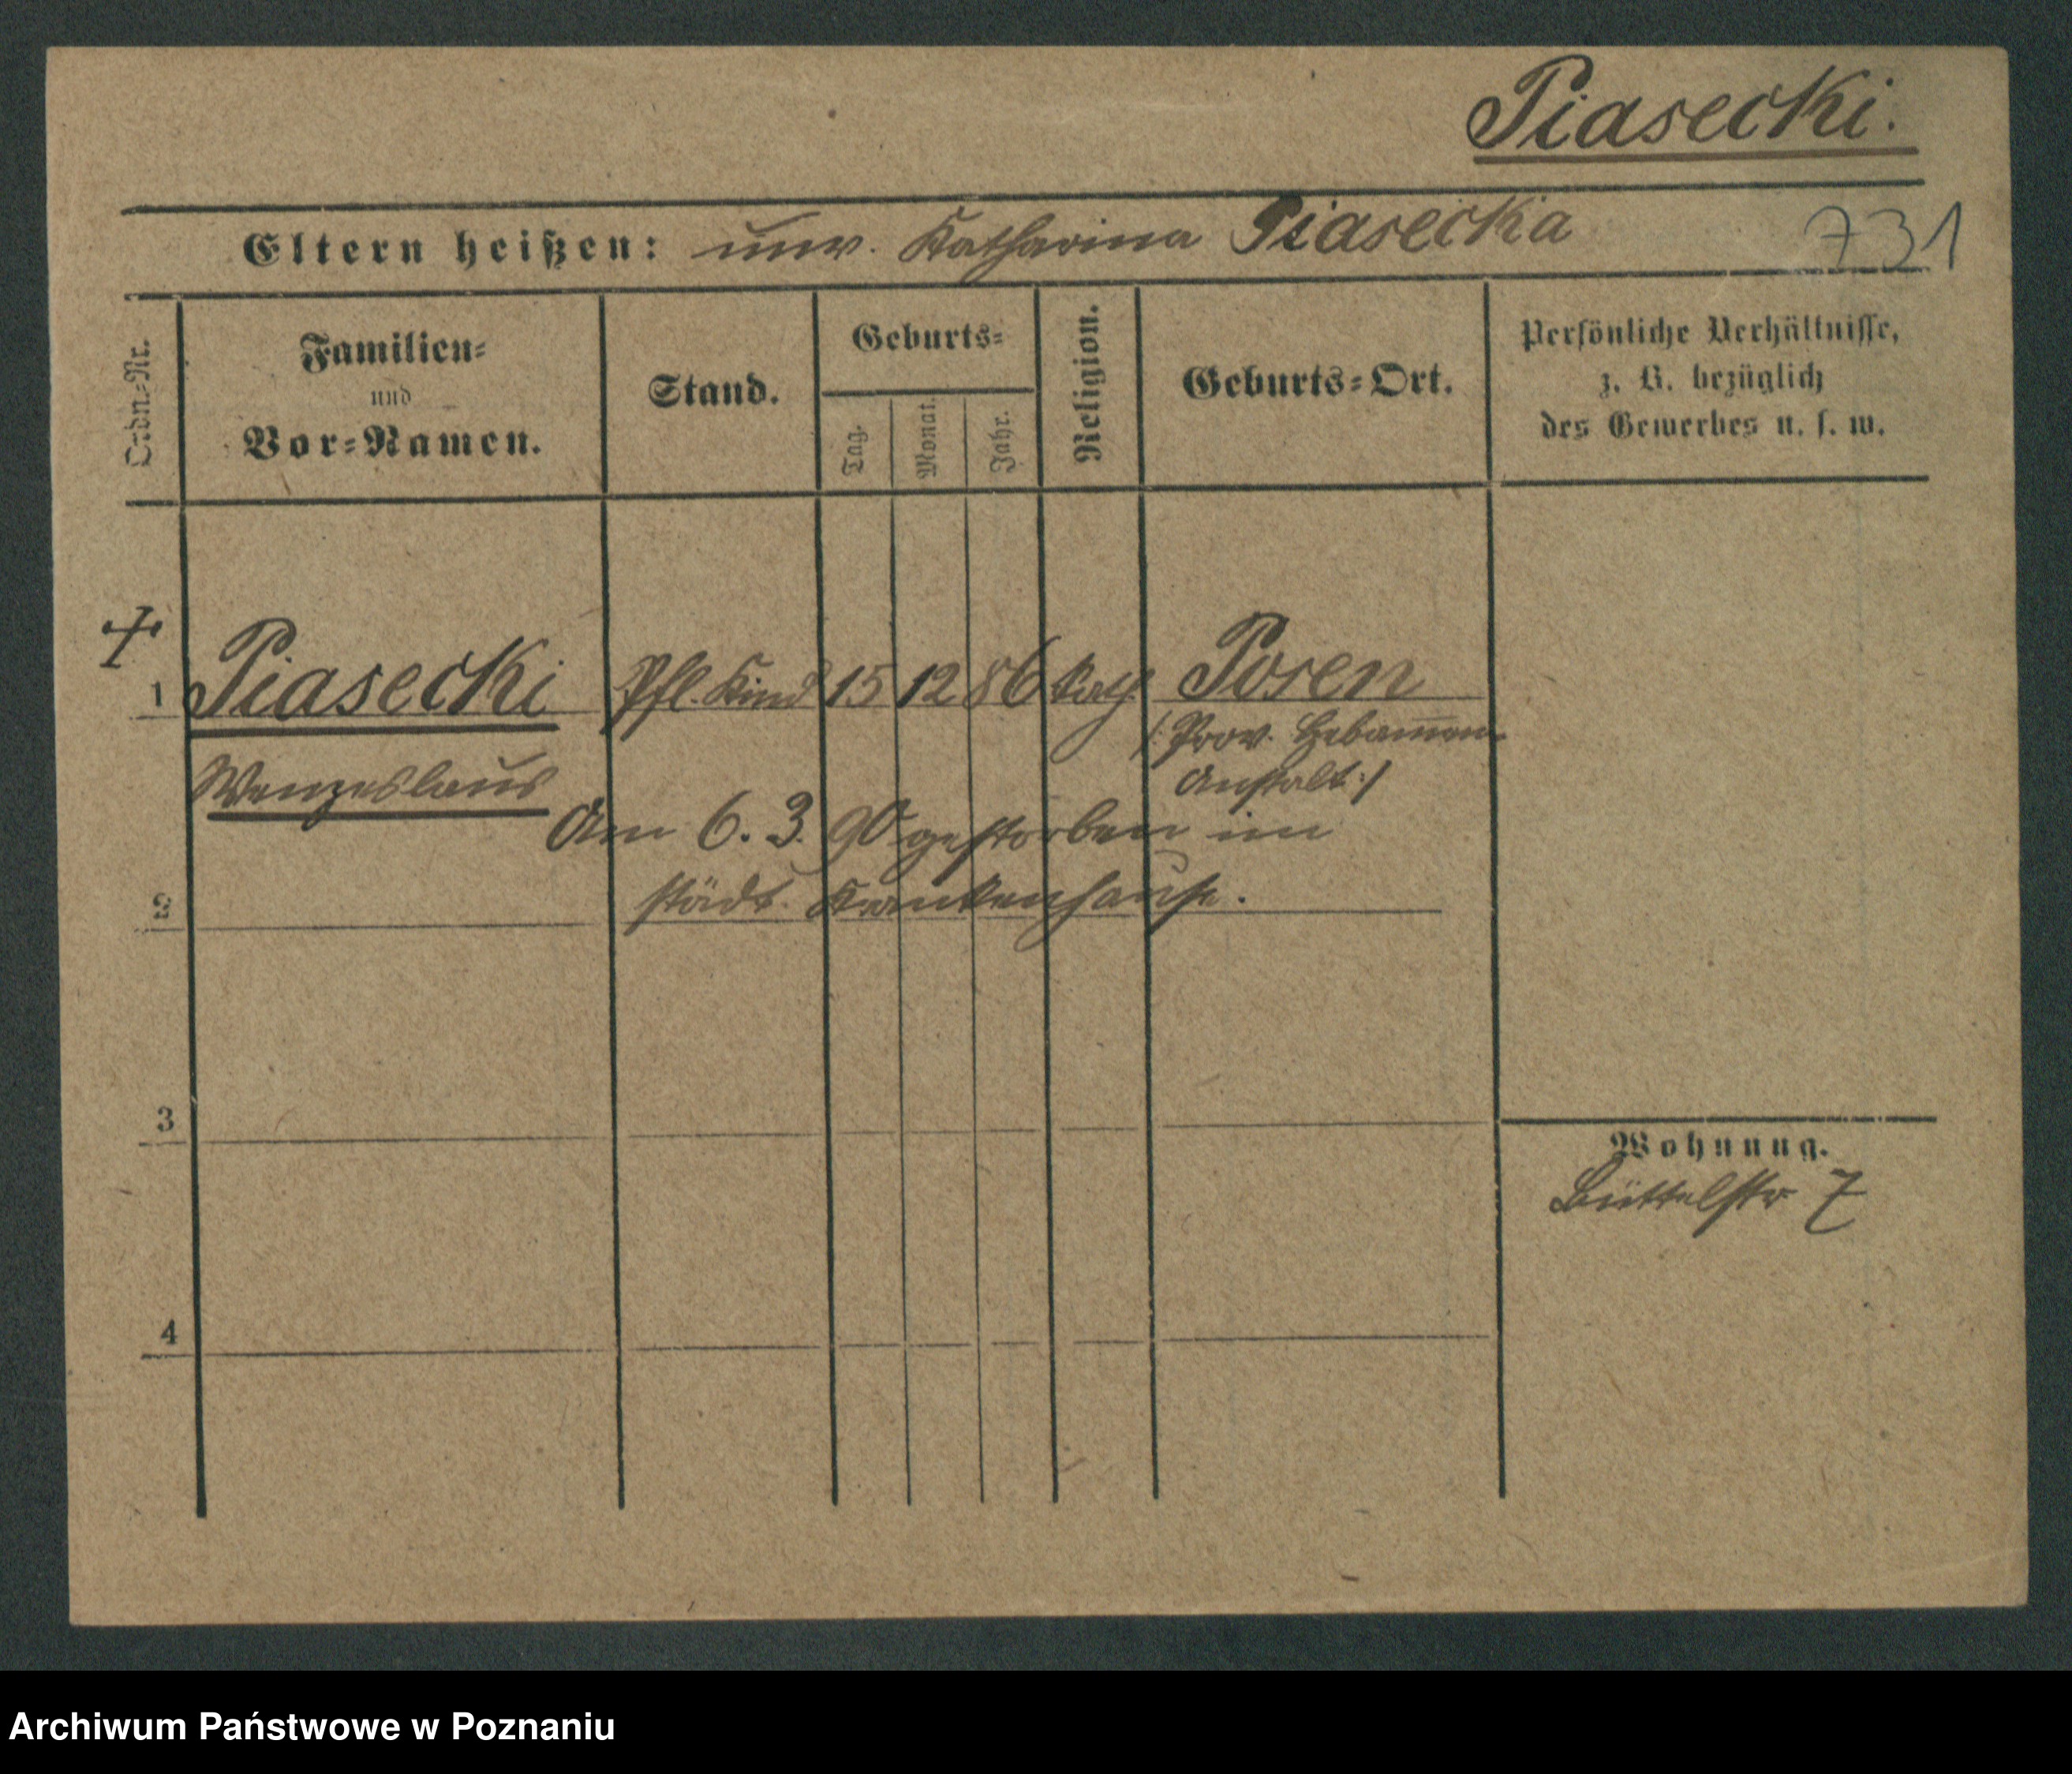 Piasecki.
Eltern heißen: unv. Katharina Piasecka
731
Ordn.-Nr.
Familien-
und
Vor-Namen.
Stand.
Geburts-
Tag.
Monat.
Jahr.
Religion.
Geburts-Ort.
Persönliche Verhältnisse,
z. B. bezüglich
des Gewerbes u. s. w.
1 Piasecki Pfl. Kind 15 12 86 kath. Posen
/: Prov. Hebammen
Anstalt :/
Wenzeslaus
Am 6. 3. 90 gestorben im
städt. Krankenhause.
2
3
Wohnung.
Büttelstr 7
4
Archiwum Państwowe w Poznaniu